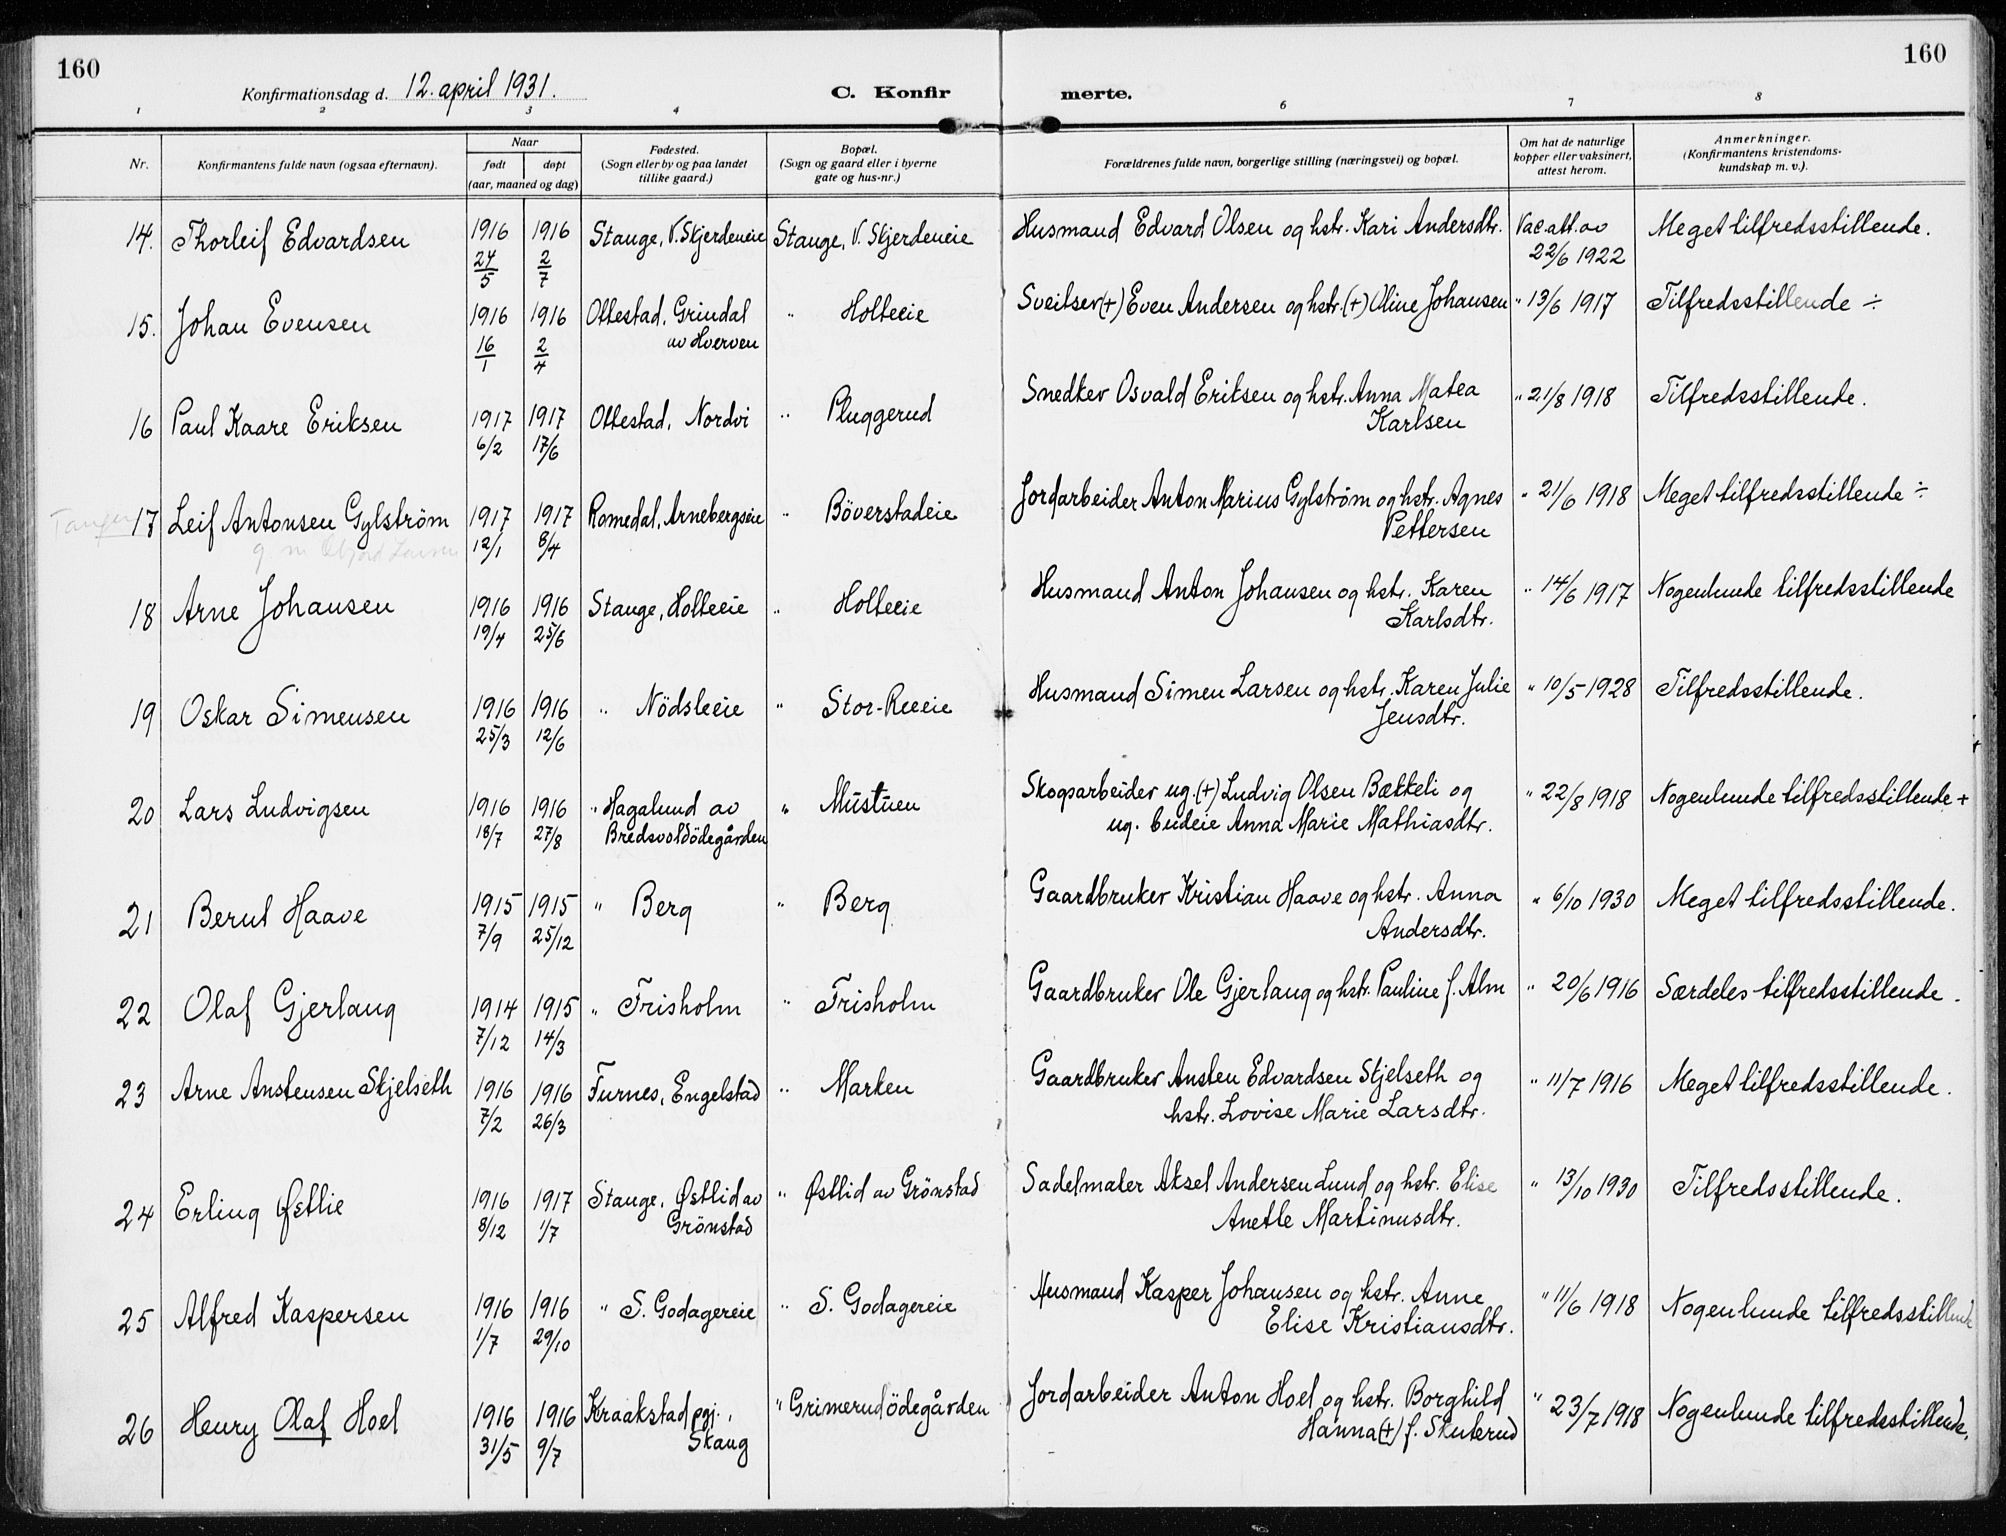 160
160
Konfirmationsdag d. 12. april 1931.
C. Konfir
merte.
1 2 3 4 6 7 8
Nr.
Konfirmantens fulde navn (ogsaa efternavn).
Naar
født døpt
(aar, maaned og dag)
Fødested.
(Sogn eller by og paa landet
tillike gaard.)
Bopæl.
(Sogn og gaard eller i byerne
gate og hus-nr.)
Forældrenes fulde navn, borgerlige stilling (næringsvei) og bopæl.
Om hat de naturlige
kopper eller vaksinert,
attest herom.
Anmerkninger.
(Konfirmantens kristendoms-
kundskap m. v.).
14. Thorleif Edvardsen 1916 1916 Stange, V. Skjerdeneie Stange, V. Skjerdeneie Husmand Edvard Olsen og hstr. Kari Andersdtr. Vac. att. av Meget tilfredsstillende.
24/5 2/7 22/6 1922
15. Johan Evensen 1916 1916 Ottestad, Grindal " Holteeie Sveitser (+) Even Andersen og hstr. (+) Oline Johansen " 13/6 1917 Tilfredsstillende ÷
16/1 2/4 av Hverven
16 Paul Kaare Eriksen 1917 1917 Ottestad, Nordvi " Pluggerud Snedker Osvald Eriksen og hstr. Anna Matea " 21/8 1918 Tilfredsstillende.
6/2 17/6 Karlsen
Tangen 17 Leif Antonsen Gylström 1917 1917 Romedal, Arnebergseie " Böverstadeie Jordarbeider Anton Marius Gylström og hstr. Agnes " 21/6 1918 Meget tilfredsstillende ÷
g. m. 12/1 8/4 Pettersen
18 Arne Johansen 1916 1916 Stange, Holteeie " Holteeie Husmand Anton Johansen og hstr. Karen " 14/6 1917 Nogenlunde tilfredsstillende
19/4 25/6 Karlsdtr.
19 Oskar Simensen 1916 1916 " Nödsleeie " Stor-Reeeie Husmand Simen Larsen og hstr. Karen Julie " 10/5 1928 Tilfredsstillende.
25/3 12/6 Jensdtr.
20 Lars Ludvigsen 1916 1916 " Hagalund av " Mustuen Skogsarbeider ug. (+) Ludvig Olsen Bækkeli og " 22/8 1918 Nogenlunde tilfredsstillende +
18/7 27/8 Bredsvoldödegården ug. budeie Anna Marie Mathiasdtr.
21 Bernt Haave 1915 1915 " Berg " Berg Gaardbruker Kristian Haave og hstr. Anna " 6/10 1930 Meget tilfredsstillende.
7/9 25/12 Andersdtr.
22 Olaf Gjerlaug 1914 1915 " Frisholm " Frisholm Gaardbruker Ole Gjerlaug og hstr. Pauline f. Alm " 20/6 1916 Særdeles tilfredsstillende.
7/12 14/3
23 Arne Anstensen Skjelseth 1916 1916 Furnes, Engelstad " Marken Gaardbruker Ansten Edvardsen Skjelseth og " 11/7 1916 Meget tilfredsstillende.
7/2 26/3 hstr. Lovise Marie Larsdtr.
24 Erling Østlie 1916 1917 Stange, Østlid av " Østlid av Grönstad Sadelmaker Aksel Andersen Lund og hstr. Elise " 13/10 1930 Tilfredsstillende.
8/12 1/7 Grönstad Anette Martinusdtr.
25 Alfred Kaspersen 1916 1916 " S. Godagereie " S. Godagereie Husmand Kasper Johansen og hstr. Anne " 11/6 1918 Nogenlunde tilfredsstillende
1/7 29/10 Elise Kristiansdtr.
26 Henry Olaf Hoel 1916 1916 Kraakstad pgj., " Grimerudödegården Jordarbeider Anton Hoel og hstr. Borghild " 23/7 1918 Nogenlunde tilfredsstillende.
31/5 9/7 Skaug Hanna (+) f. Skuterud